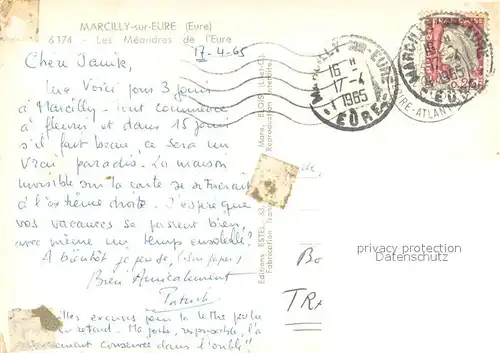 MARCILLY-sur-EURE (Eure)
6174 - Les Méandres de l'Eure
17-4-65
Chère Janik,
Me Voici pour 3 jours
à Marcilly - tout commence
à fleurir et dans 15 jours
s'il fait beau, ce sera un
vrai paradis. La maison
invisible sur la carte se situerait
à l'extrême droite. J'espère que
vos vacances se passent bien,
avec même un temps ensoleillé?
A bientôt je pense,
Bien Amicalement
Patrick
excuses pour la lettre
retard. Ma poche, responsable, l'a
conservée dans l'oubli!
Editions ESTEL
BLOIS
Fabrication française
Reproduction interdite
MARCILLY SUR-EURE
16 H
17-4
1965
EURE
16
1965
EURE
privacy protection
Datenschutz
Bo
TRA